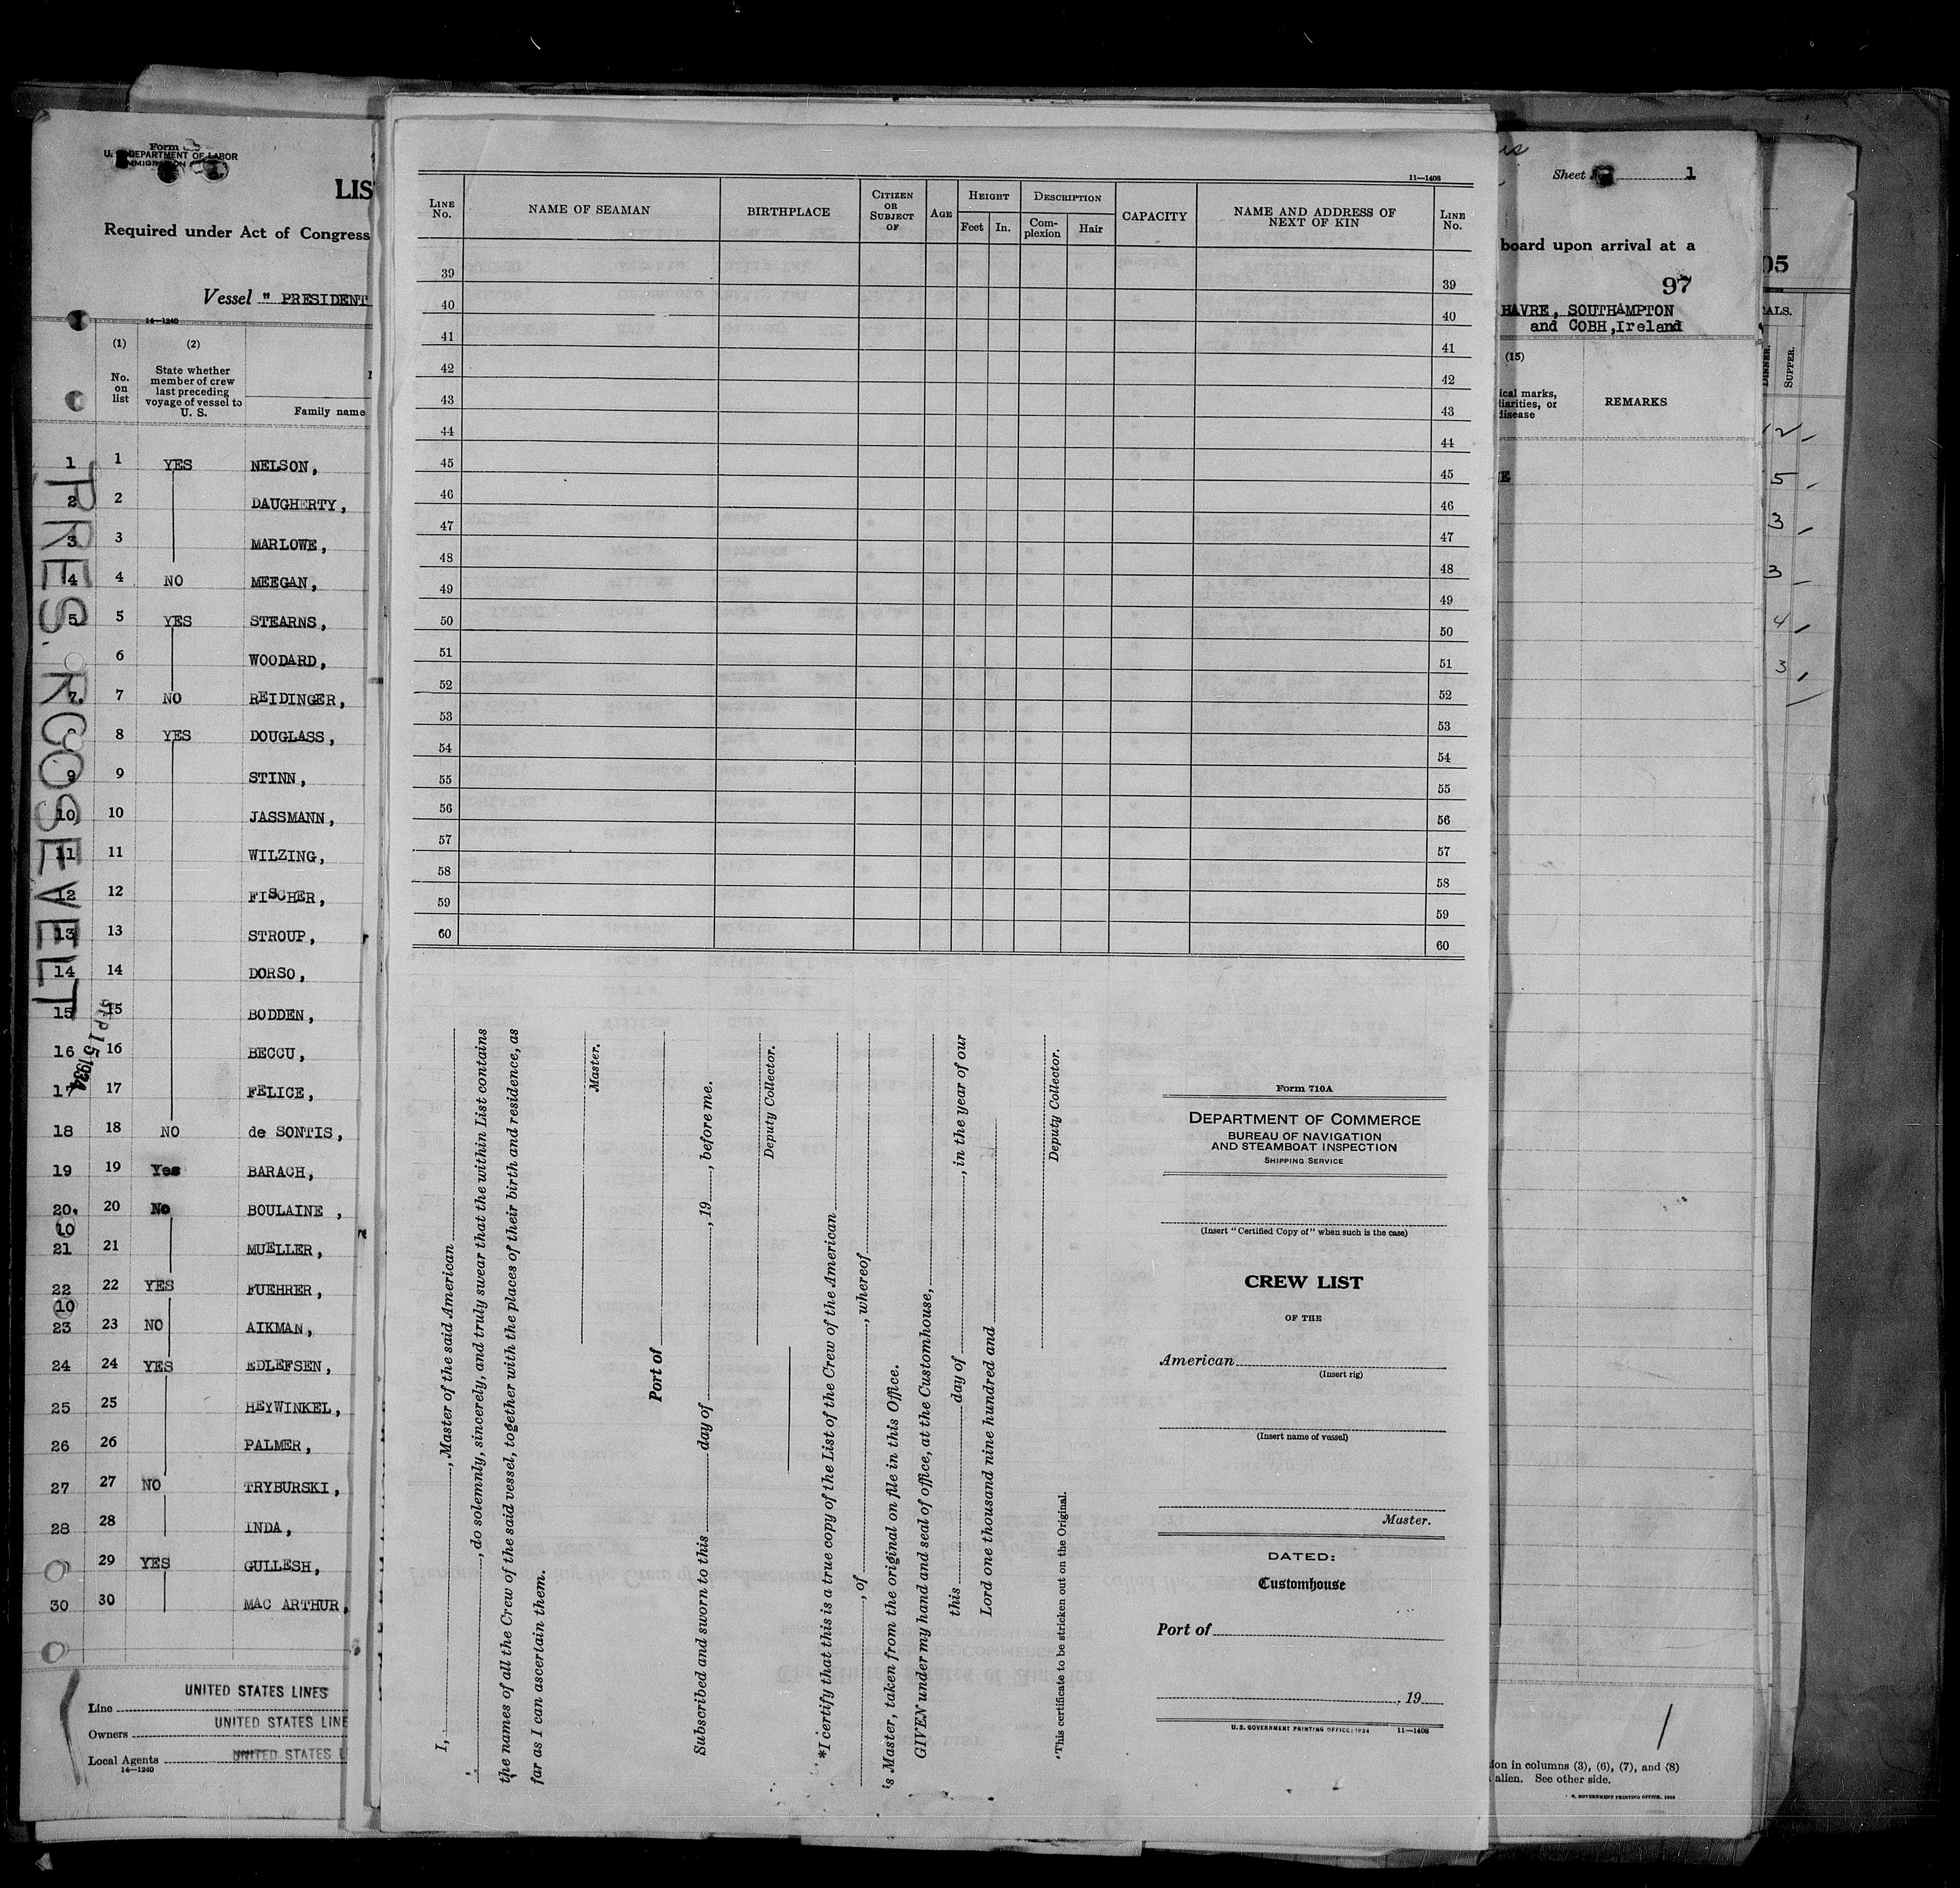 U. S. DEPARTMENT OF LABOR
LIS
Required under Act of Congress
Vessel " PRESIDENT
14—1240
(1) (2)
No. on list
State whether member of crew last preceding voyage of vessel to U. S.
Family name
1 1 YES NELSON,
2 2 DAUGHERTY,
3 3 MARLOWE,
4 4 NO MEEGAN,
5 5 YES STEARNS,
6 WOODARD,
7 7 NO REIDINGER,
8 YES DOUGLASS,
9 9 STINN,
10 10 JASSMANN,
11 11 WILZING,
12 12 FISCHER,
13 13 STROUP,
14 14 DORSO,
15 15 BODDEN,
16 16 BECCU,
17 17 FELICE,
18 18 NO de SONTIS,
19 19 Yes BARACH,
20. 20 No BOULAINE ,
10
21 21 MUELLER,
22 22 YES FUEHRER,
10
23 23 NO AIKMAN,
24 24 YES EDLEFSEN,
25 25 HEYWINKEL,
26 26 PALMER,
27 27 NO TRYBURSKI,
28 28 INDA,
29 YES GULLESH,
30 30 MAC ARTHUR,
PRES. ROOSEVELT
SEP 15 1934
UNITED STATES LINES
Line
UNITED STATES LINE
Owners
UNITED STATES L
Local Agents
14—1240
11—1408
LINE No. NAME OF SEAMAN BIRTHPLACE CITIZEN OR SUBJECT OF AGE HEIGHT Feet In. DESCRIPTION Complexion Hair CAPACITY NAME AND ADDRESS OF NEXT OF KIN LINE No.
39 39
40 40
41 41
42 42
43 43
44 44
45 45
46 46
47 47
48 48
49 49
50 50
51 51
52 52
53 53
54 54
55 55
56 56
57 57
58 58
59 59
60 60
I, , Master of the said American
, do solemnly, sincerely, and truly swear that the within List contains
the names of all the Crew of the said vessel, together with the places of their birth and residence, as
far as I can ascertain them.
Master.
Port of
Subscribed and sworn to this day of , 19 , before me.
Deputy Collector.
*I certify that this is a true copy of the List of the Crew of the American
, of , whereof
is Master, taken from the original on file in this Office.
GIVEN under my hand and seal of office, at the Customhouse,
this day of , in the year of our
Lord one thousand nine hundred and
Deputy Collector.
*This certificate to be stricken out on the Original.
Form 710A
DEPARTMENT OF COMMERCE
BUREAU OF NAVIGATION
AND STEAMBOAT INSPECTION
SHIPPING SERVICE
(Insert "Certified Copy of" when such is the case)
CREW LIST
OF THE
American
(Insert rig)
(Insert name of vessel)
Master.
DATED:
Customhouse
Port of
, 19
U.S. GOVERNMENT PRINTING OFFICE: 1934 11—1408
Sheet 1
board upon arrival at a
97
HAVRE, SOUTHAMPTON
and COBH,Ireland
(15)
ical marks,
liarities, or
disease
REMARKS
E
ion in columns (3), (6), (7), and (8)
alien. See other side.
GOVERNMENT PRINTING OFFICE
05
ALS.
DINNER.
SUPPER.
12
5
3
3
4
3